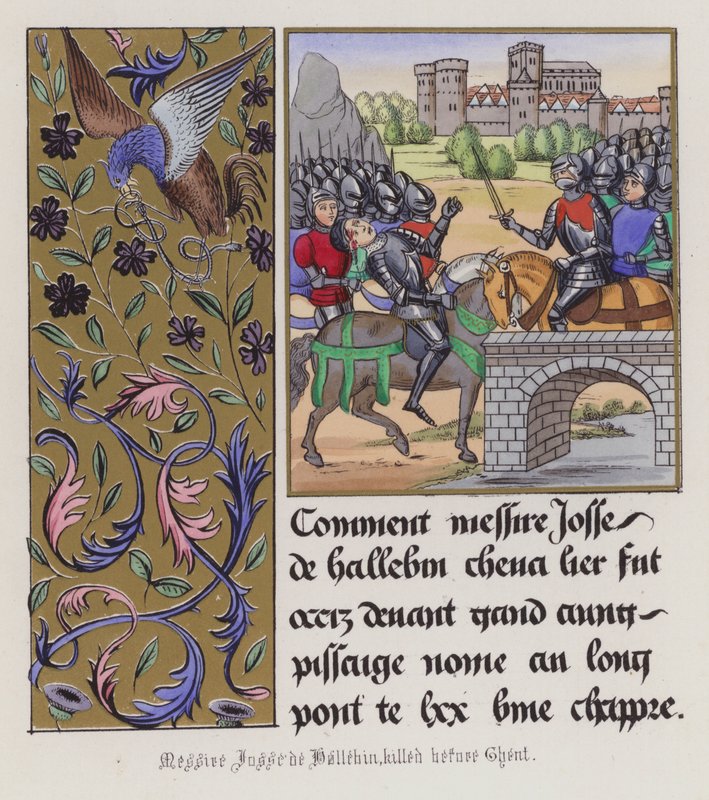 Comment messire Josse
de hallebin cheua lier fut
occiz deuant gand aung
pissaige nome au long
pont te lxx bme chappre.
Messire Josse de Hallebin, killed before Ghent.